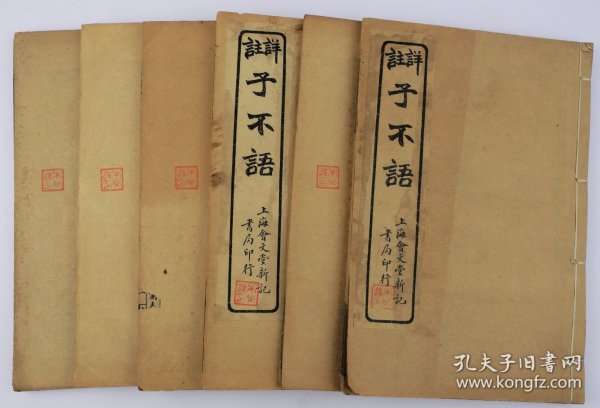 詳註
子不語
上海會文堂新記
書局印行
詳註
子不語
上海會文堂新記
書局印行
孔夫子旧书网
www.kongfz.com